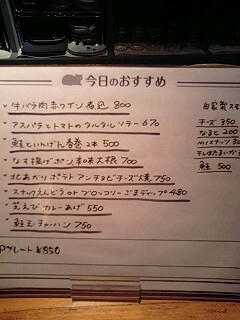 今日のおすすめ
牛バラ肉赤ワイン煮込 800
アスパラとトマトのタルタルソテー 670
鮭といんげん春巻2本 500
なす揚げポン 大根 700
北あかりポテトアンチョビチーズ焼 750
スナックえんどうとブロッコリーごまディップ 480
芝えびカレーあげ 550
鮭玉チャーハン 750
Pプレート ¥850
自家製スモ
チーズ 350
なまと 200
mixナッツ 30
鮭 500